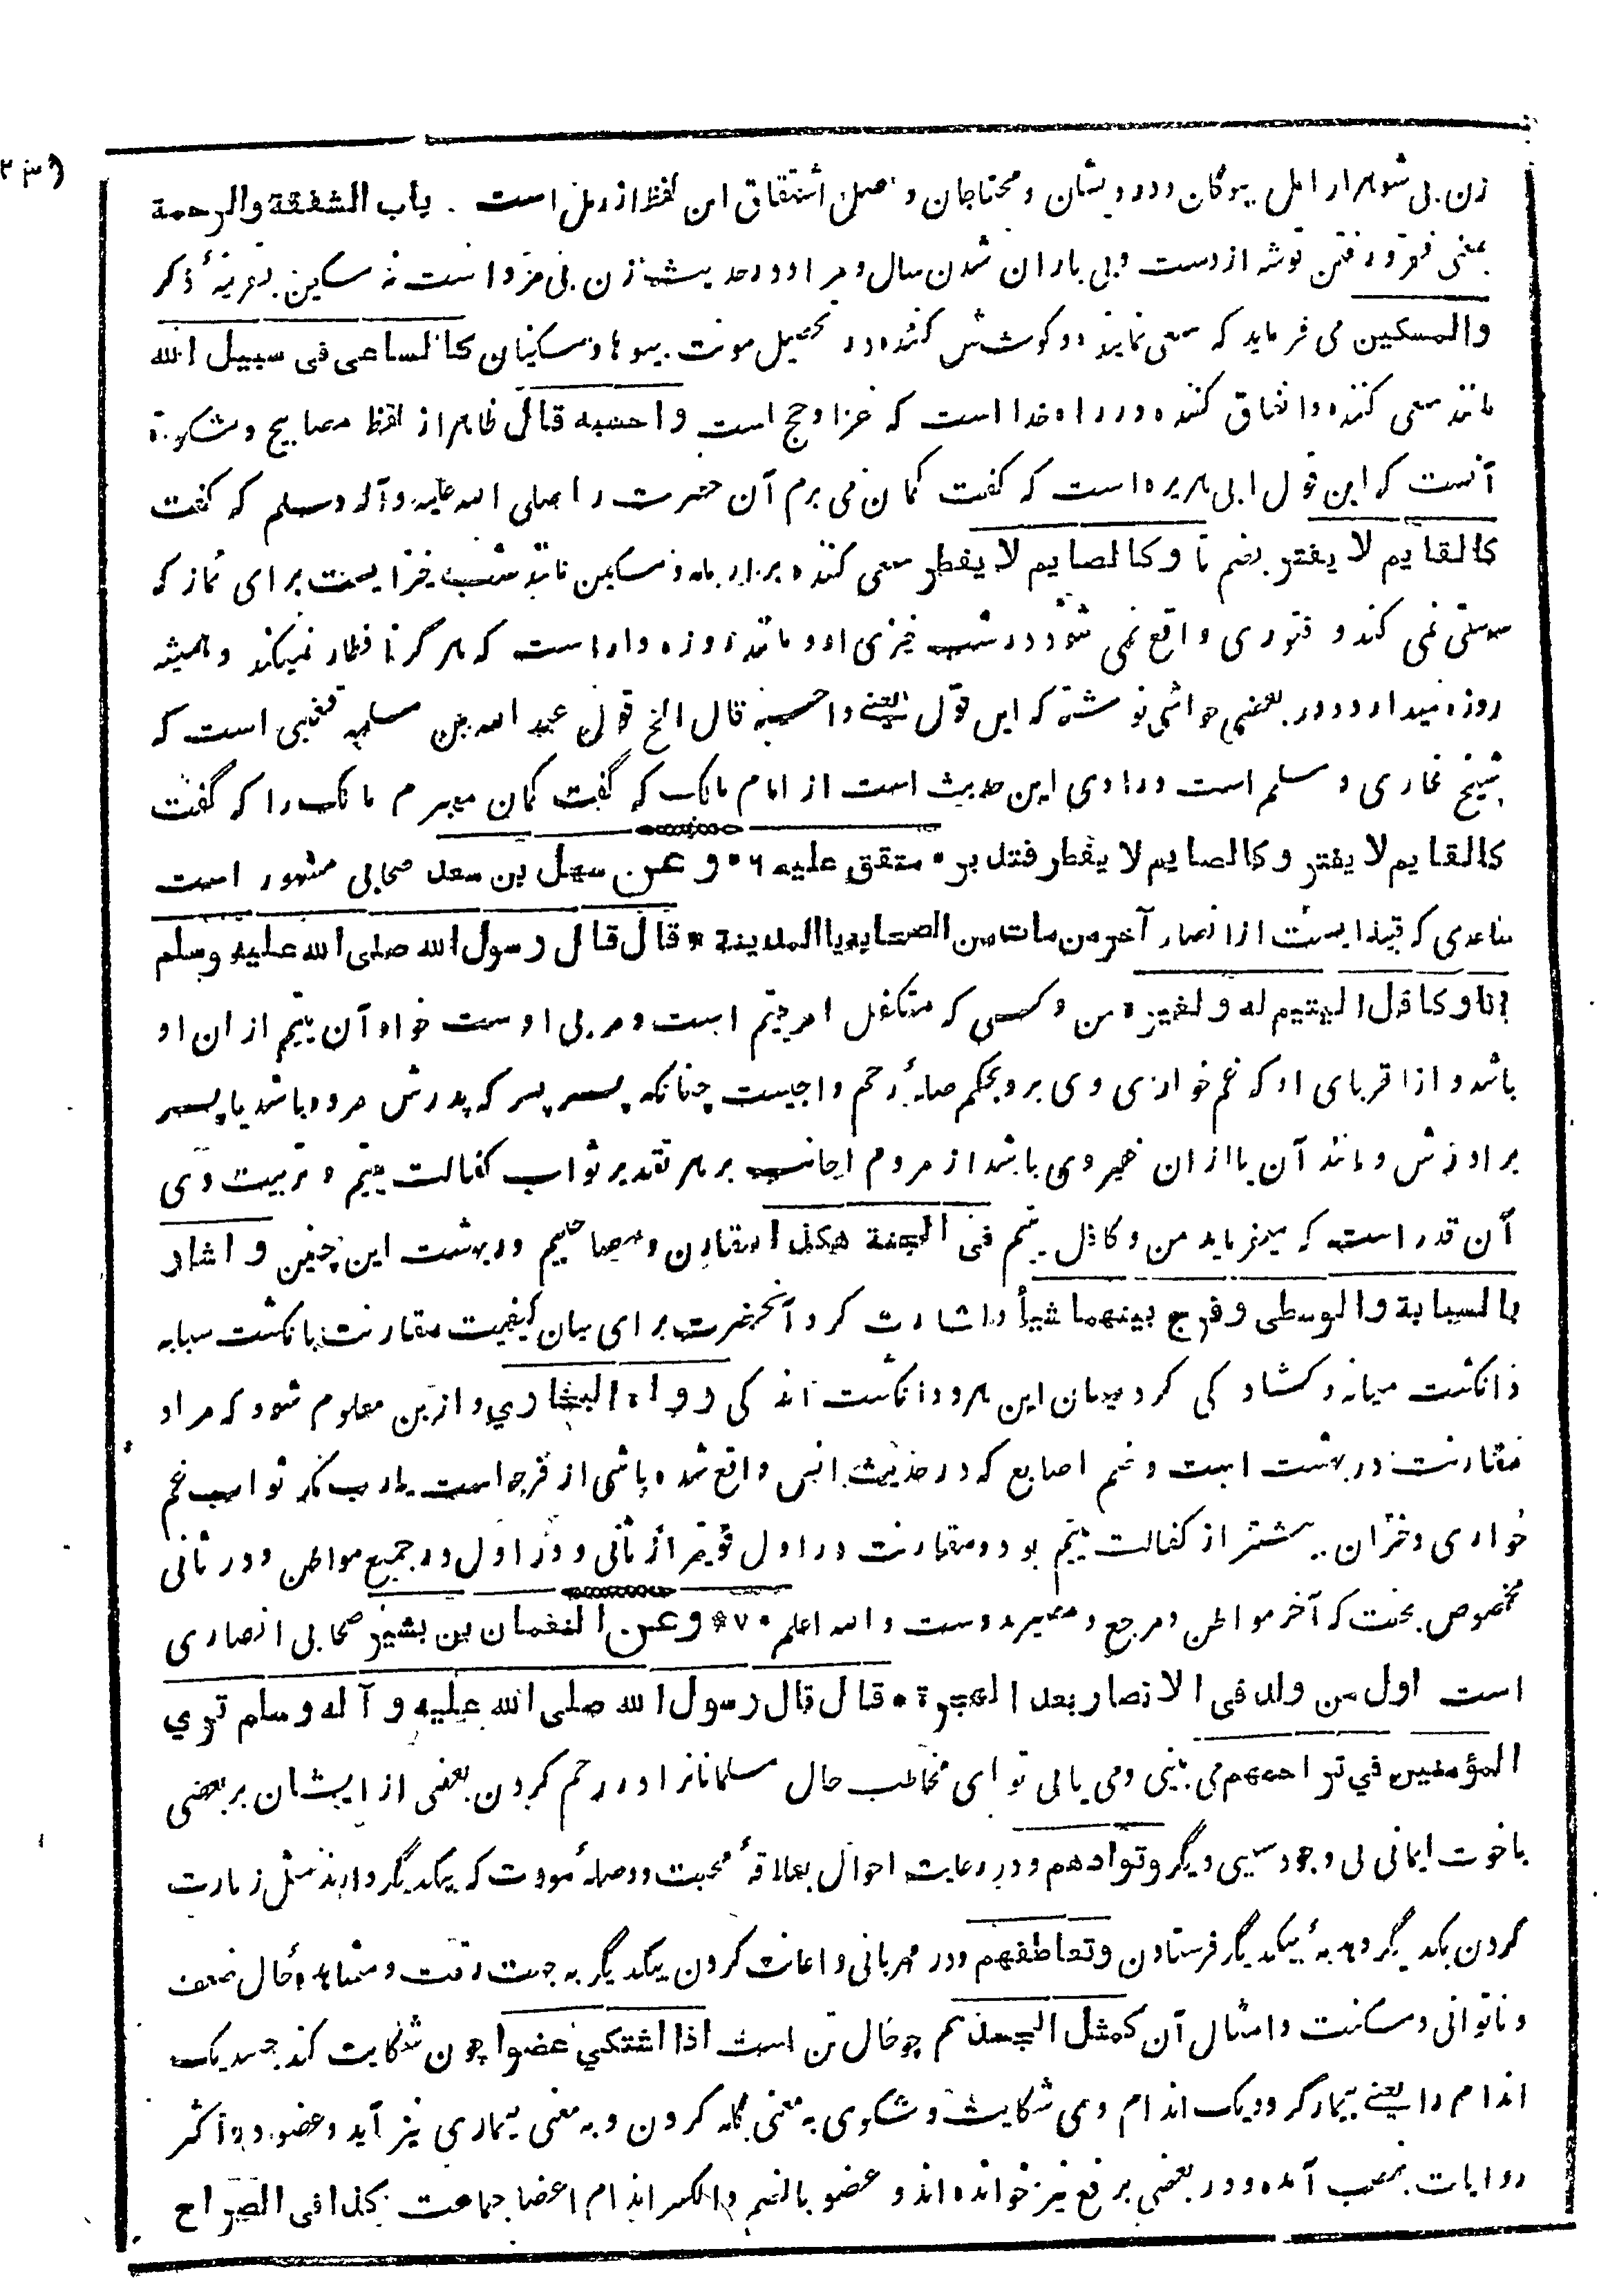 زن بی شوهر ارامل بیوگان و درویشان و محتاجان و اصل اشتقاق این لفظ از رمل است . باب الشفقة والرحمة
بمعنی فقر و رفتن توشه از دست و بی باران شدن سال و مراد در حدیث زن بی مزد است نه مسکین بقرینهٔ ذکر
والمسکین می فرماید که سعی نماینده و کوشش کننده در تحصیل مونت بیوها و مسکینان کالساعی فی سبیل الله
مانند سعی کننده و انفاق کننده در راه خدا است که غزا و حج است واحسبه قال ظاهر از لفظ مصابیح و مشکوة
آنست که این قول ابی هریره است که گفت گمان می برم آن حضرت را صلی الله علیه وآله وسلم که گفت
کالقایم لا یفتر بضم تا وکالصایم لا یفطر سعی کننده برارمله و مسکین مانند شب خیزایست برای نماز که
سستی نمی کند و فتوری واقع نمی شود در شب خیزی او و مانند روزه دار است که هرگز افطار نمیکند و همیشه
روزه میدارد و در بعضی حواشی نوشته که این قول یعنے واحسبه قال الخ قول عبد الله بن مسلمه قعنبی است که
شیخ بخاری و مسلم است و راوی این حدیث است از امام مالک که گفت گمان میبرم مالک را که گفت
کالقایم لا یفتر وکالصایم لا یفطر فتدبر • متفق علیه ۶• وعن سهل بن سعد صحابی مشهور است
ساعدی که قبیله ایست از انصار آخر من مات من الصحابه بالمدینة • قال قال رسول الله صلی الله علیه وسلم
انا وکافل الیتیم له ولغیره من و کسی که متکفل امر یتیم است و مربی اوست خواه آن یتیم ازان او
باشد و از اقربای او که غم خواری وی برو بحکم صلهٔ رحم واجبست چنانکه پسر پسر که پدرش مرده باشد یا پسر
برادرش و مانند آن یا ازان غیر وی باشد از مردم اجانب بر هر تقدیر ثواب کفالت یتیم و تربیت وی
آن قدر است که میفرماید من و کافل یتیم فی الجنة هکذا مقارن و مصاحبیم در بهشت این چنین واشار
بالسبابة والوسطی وفرج بینهما شیأ و اشارت کرد آنحضرت برای بیان کیفیت مقارنت بانگشت سبابه
و انگشت میانه و کشاد کی کرد میان این هر دو انگشت اندکی رواه البخاري و ازین معلوم شود که مراد
مقارنت در بهشت است و ضم اصابع که در حدیث انس واقع شده ناشی از فرجه است یارب مگر ثواب غم
خواری دختران بیشتر از کفالت یتیم بود و مقارنت در اول قویتر از ثانی و در اول در جمیع مواطن و در ثانی
مخصوص بجنت که آخر مواطن و مرجع و مصیر همه اوست والله اعلم • ۷* وعن النعمان بن بشیر صحابی انصاری
است اول من ولد فی الانصار بعد الهجرة • قال قال رسول الله صلی الله علیه وآله وسلم تري
المؤمنین في تراحمهم می بینی و می یابی تو ای مخاطب حال مسلمانانرا در رحم کردن بعضی از ایشان بر بعضی
باخوت ایمانی بی وجود سببی دیگر وتوادهم و در رعایت احوال بعلاقهٔ محبت و وصلهٔ مودت که بیکدیگر دارند مثل زیارت
کردن یکدیگر و هدیهٔ بیکدیگر فرستادن وتعاطفهم و در مهربانی و اعانت کردن یکدیگر به جهت رقت و مشاهدهٔ حال ضعف
و ناتوانی و مسکنت و امثال آن کمثل الجسد هم چو حال تن است اذا اشتکي عضوا چون شکایت کند جسد یک
اندام را یعنے بیمار گردد یک اندام وی شکایت و شکوی به معنی گله کردن و به معنی بیماری نیز آید و عضو در اکثر
روایات بنصب آمده و در بعضی برفع نیز خوانده اند و عضو بالضم والکسر اندام اعضا جماعت کذا فی الصراح